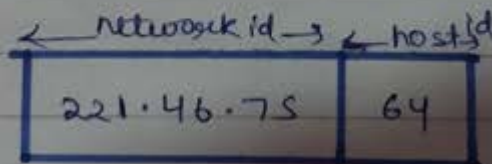 network id host id
221.46.75 64